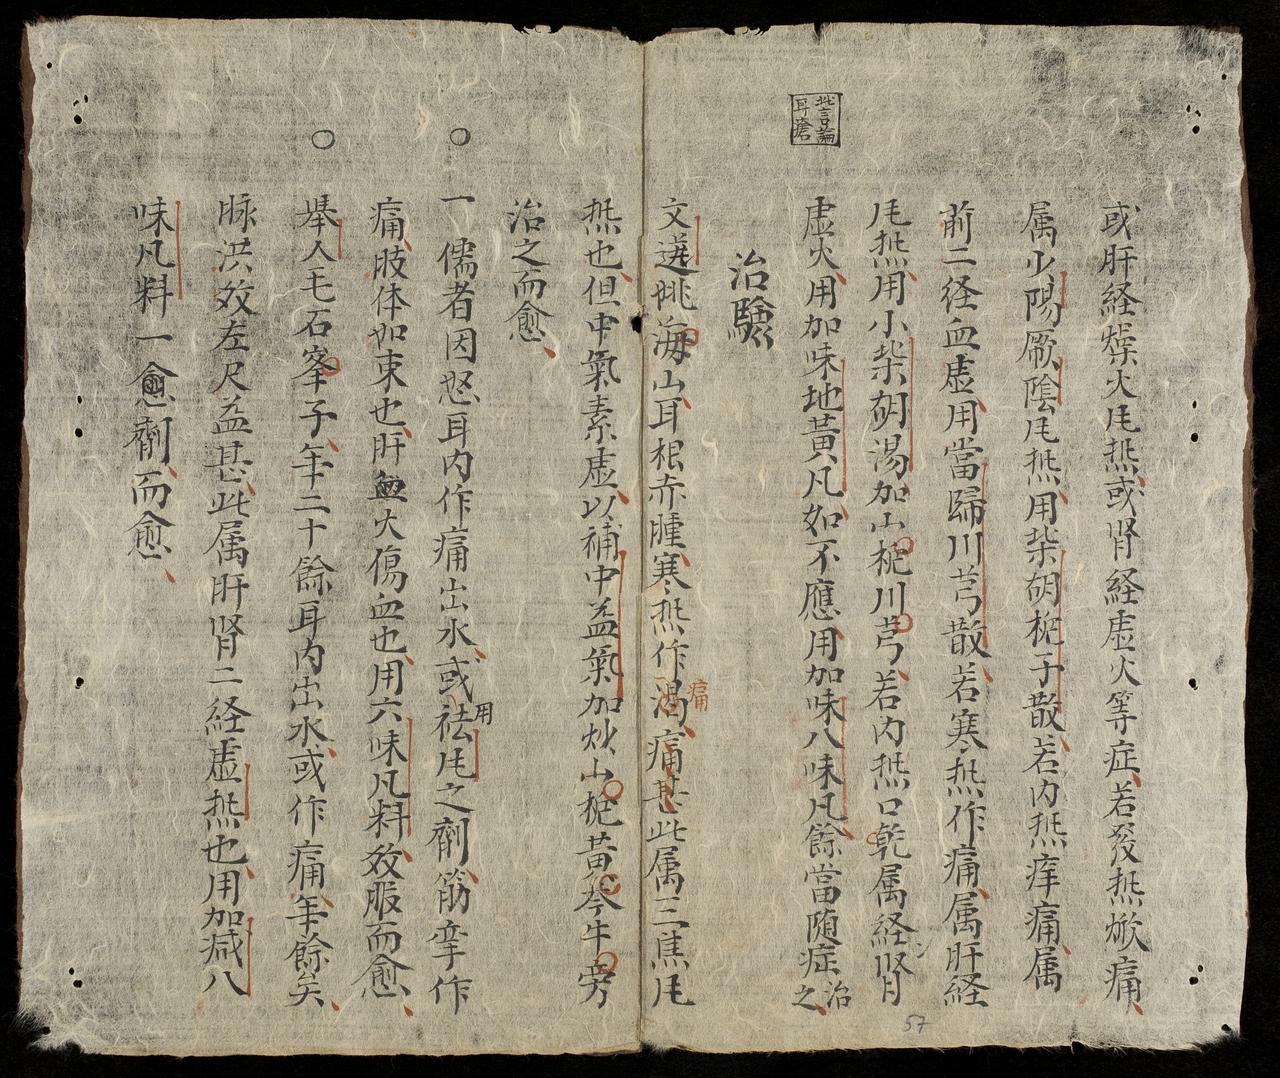 此言論
耳瘡
或肝経燥火𠘨熱或肾経虚火等症若發热焮痛
属少陽厥陰𠘨热用柴胡梔子散若内热痒痛属
前二経血虚用當歸川芎散若寒热作痛属肝経
𠘨热用小柴胡湯加山梔川芎若内热口乾属経肾
虚火用加味地黃凡如不應用加味八味凡餘當随症治之
治驗
文選姚海山耳根赤腫寒热作渴痛甚此属三焦𠘨
痛
热也但中氣素虚以補中益氣加炒山梔黃芩牛旁
治之而愈
一儒者因怒耳内作痛出水或祛𠘨之劑筋挛作
用
痛肢体如束也肝血火傷血也用六味凡料数服而愈
举人毛石峯子年二十餘耳内出水或作痛年餘矣
脉洪数左尺益甚此属肝肾二経虚热也用加减八
味凡料一愈劑而愈
57